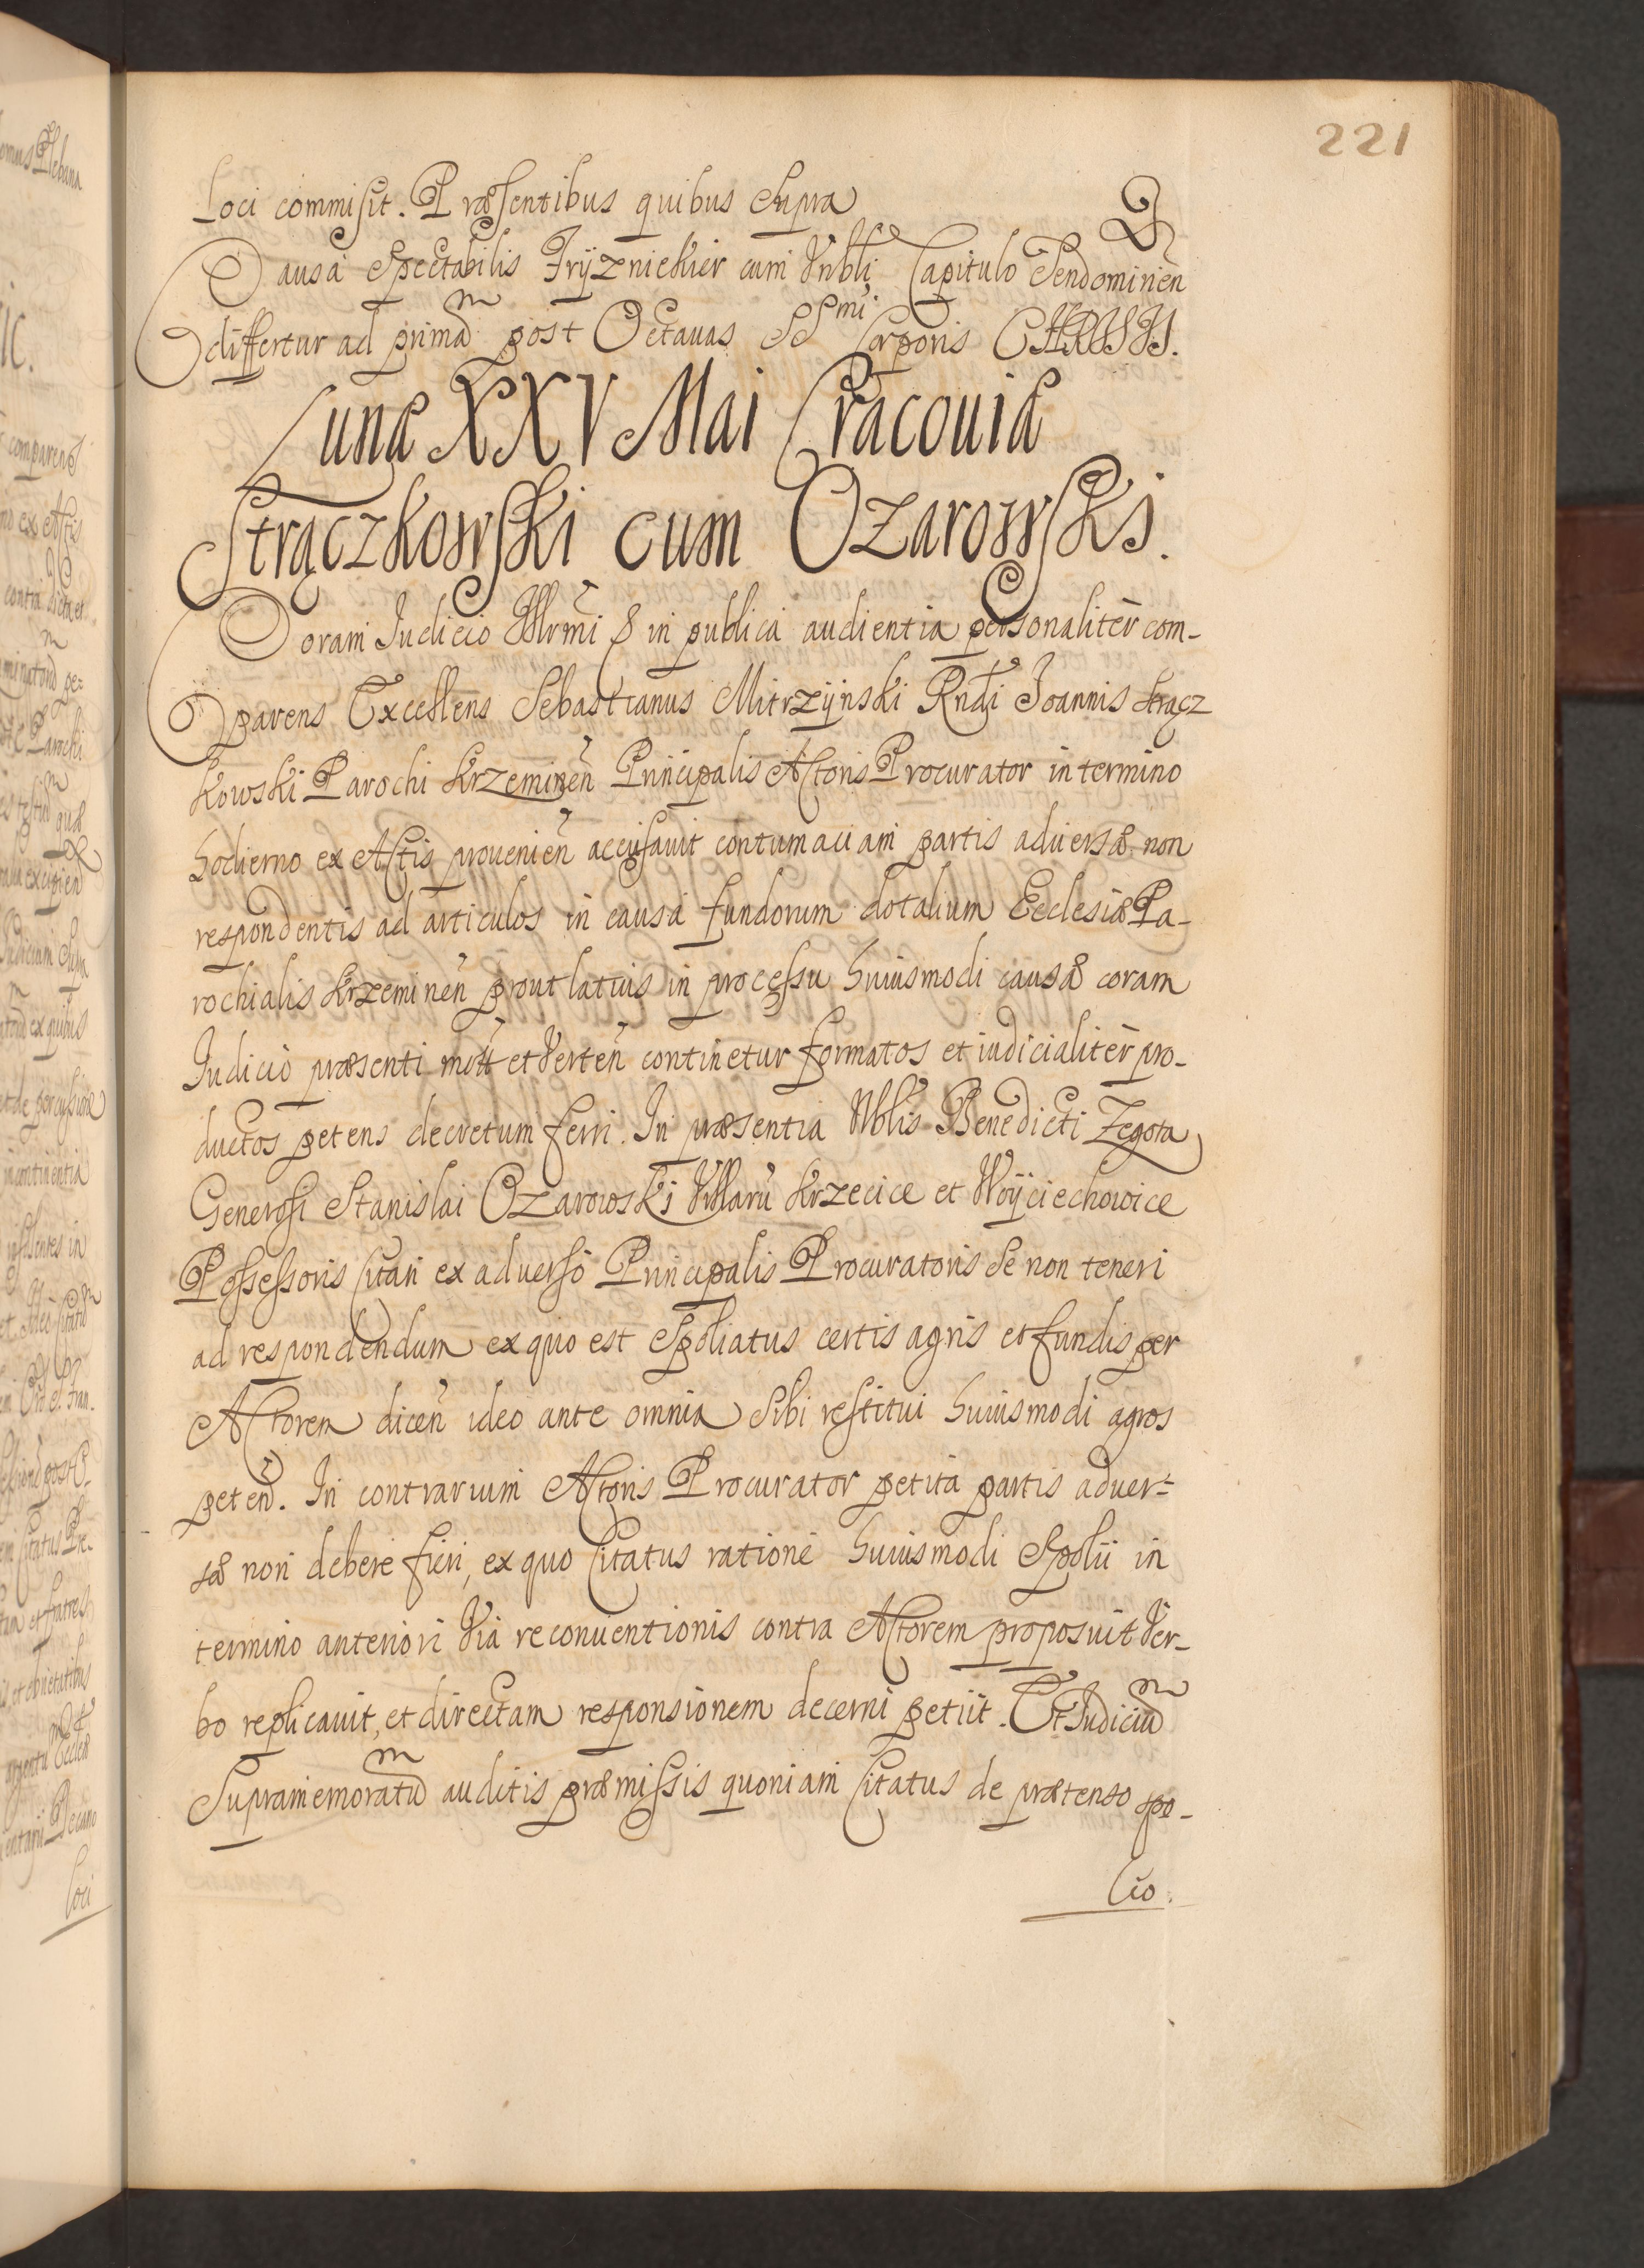 221
Loci commisit. Præsentibus quibus supra
Causa Spectabilis Fryzniekier cum Vnbli Capitulo Sendomirien̄
differtur ad primā post Octauas SSmi Corporis CHRISTI.
Lunæ XXV Maii Cracouiæ
Strączkowski cum Ozarowski.
Coram Judicio Illrmi & in publica audientia personalitèr com-
parens Excellens Sebastianus Mitrzÿnski Rndi Joannis Strącz
kowski Parochi Krzeminen̄ Principalis Actoris Procurator in termino
hodierno ex Actis prouenien̄ accusauit contumaciam partis aduersæ non
respondentis ad articulos in causa fundorum dotalium Ecclesiæ Pa-
rochialis Krzeminen̄ prout latius in processu huiusmodi causæ coram
Judicio præsenti mot̄ et verten̄ continetur formatos et iudicialitèr pro-
ductos petens decretum ferri. In præsentia Nblis Benedicti Zegota
Generosi Stanislai Ozarowski Vllarū Krzecice et Woÿciechowice
Possessoris Citati ex aduerso Principalis Procuratoris se non teneri
ad respondendum ex quo est Spoliatus certis agris et fundis per
Actorem dicen̄ ideo ante omnia sibi restitui huiusmodi agros
peten̄. In contrarium Actoris Procurator petita partis aduer-
sæ non debere fieri, ex quo Citatus ratione huiusmodi Spolii in
termino anteriori via reconuentionis contra Actorem proposuit ver-
bo replicauit, et directam responsionem decerni petiit. Et Judiciū
Supramemoratū auditis præmissis quoniam Citatus de prætenso spo-
lio.